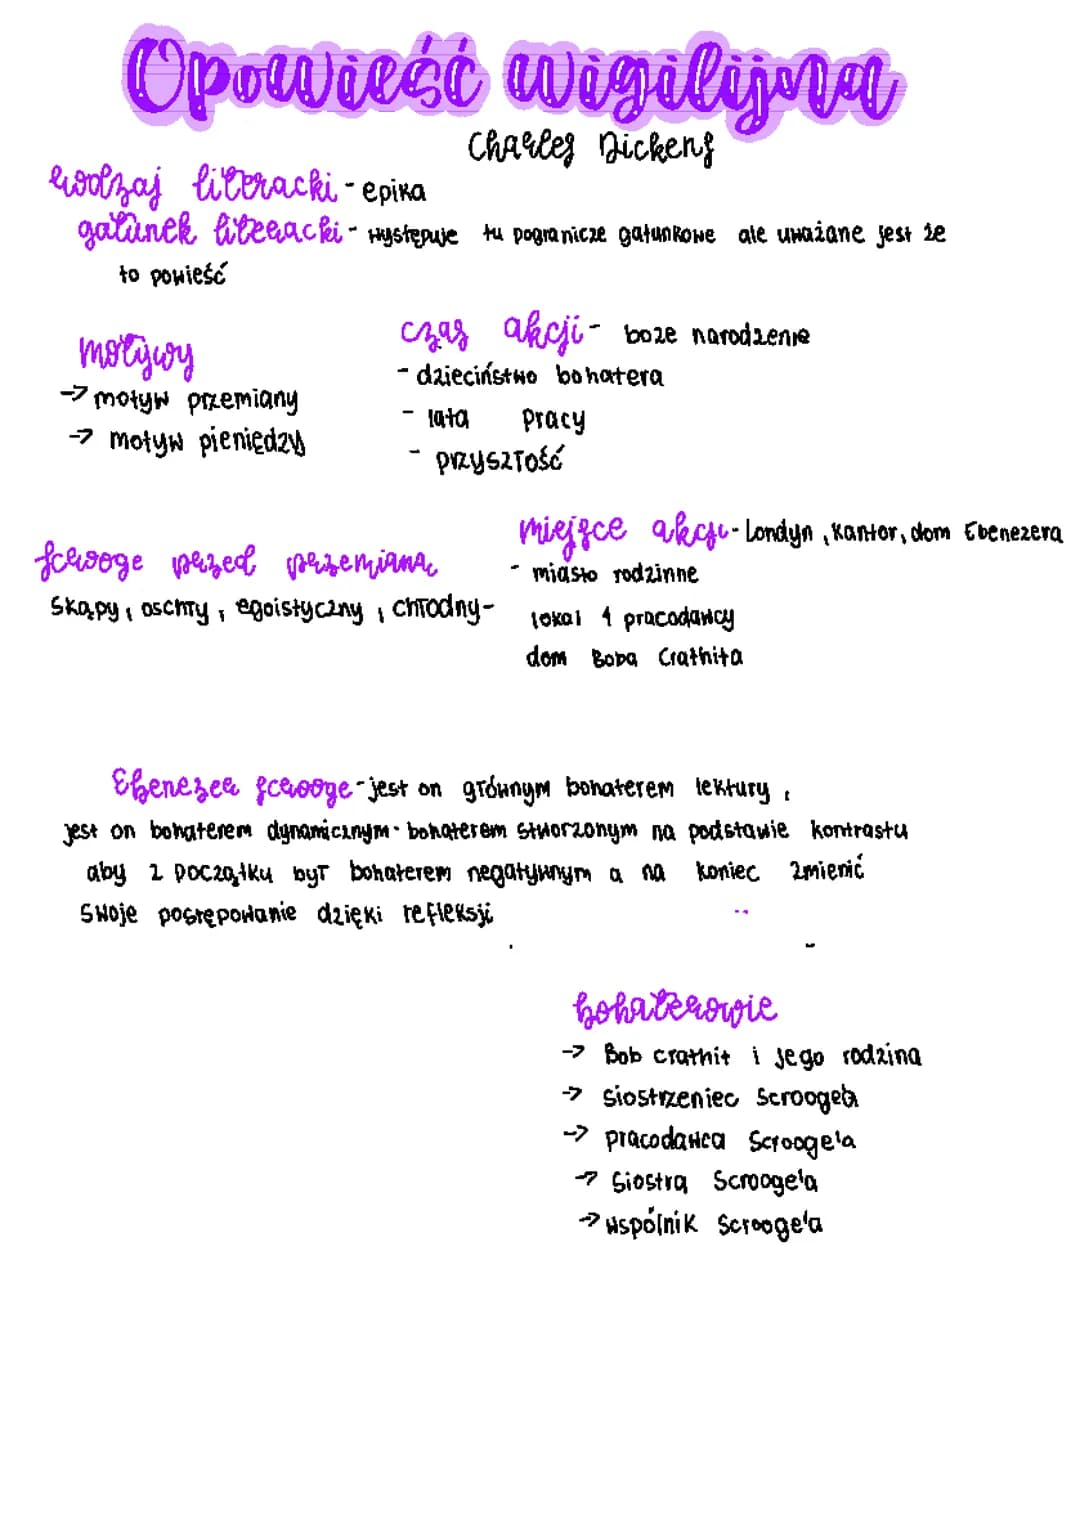 Opowieść wigilijna
Charles Dickens
rodzaj literacki - epika
gatunek literacki - występuje tu pogranicze gatunkowe ale uważane jest że
to powieść
motywy
→ motyw przemiany
→ motyw pieniędzy
czas akcji - boże narodzenie
- dzieciństwo bohatera
- lata pracy
- przyszłość
scrooge przed przemianą
skąpy, oschły, egoistyczny, chłodny -
miejsce akcji - Londyn, kantor, dom Ebenezera
- miasto rodzinne
lokal 1 pracodawcy
dom Boba Crathita
Ebenezer scrooge - jest on głównym bohaterem lektury,
jest on bohaterem dynamicznym - bohaterem stworzonym na podstawie kontrastu
aby z początku był bohaterem negatywnym a na koniec zmienić
swoje postępowanie dzięki refleksji
bohaterowie
→ Bob crathit i jego rodzina
→ siostrzeniec Scrooge'a
→ pracodawca Scrooge'a
→ siostra Scrooge'a
→ wspólnik Scrooge'a